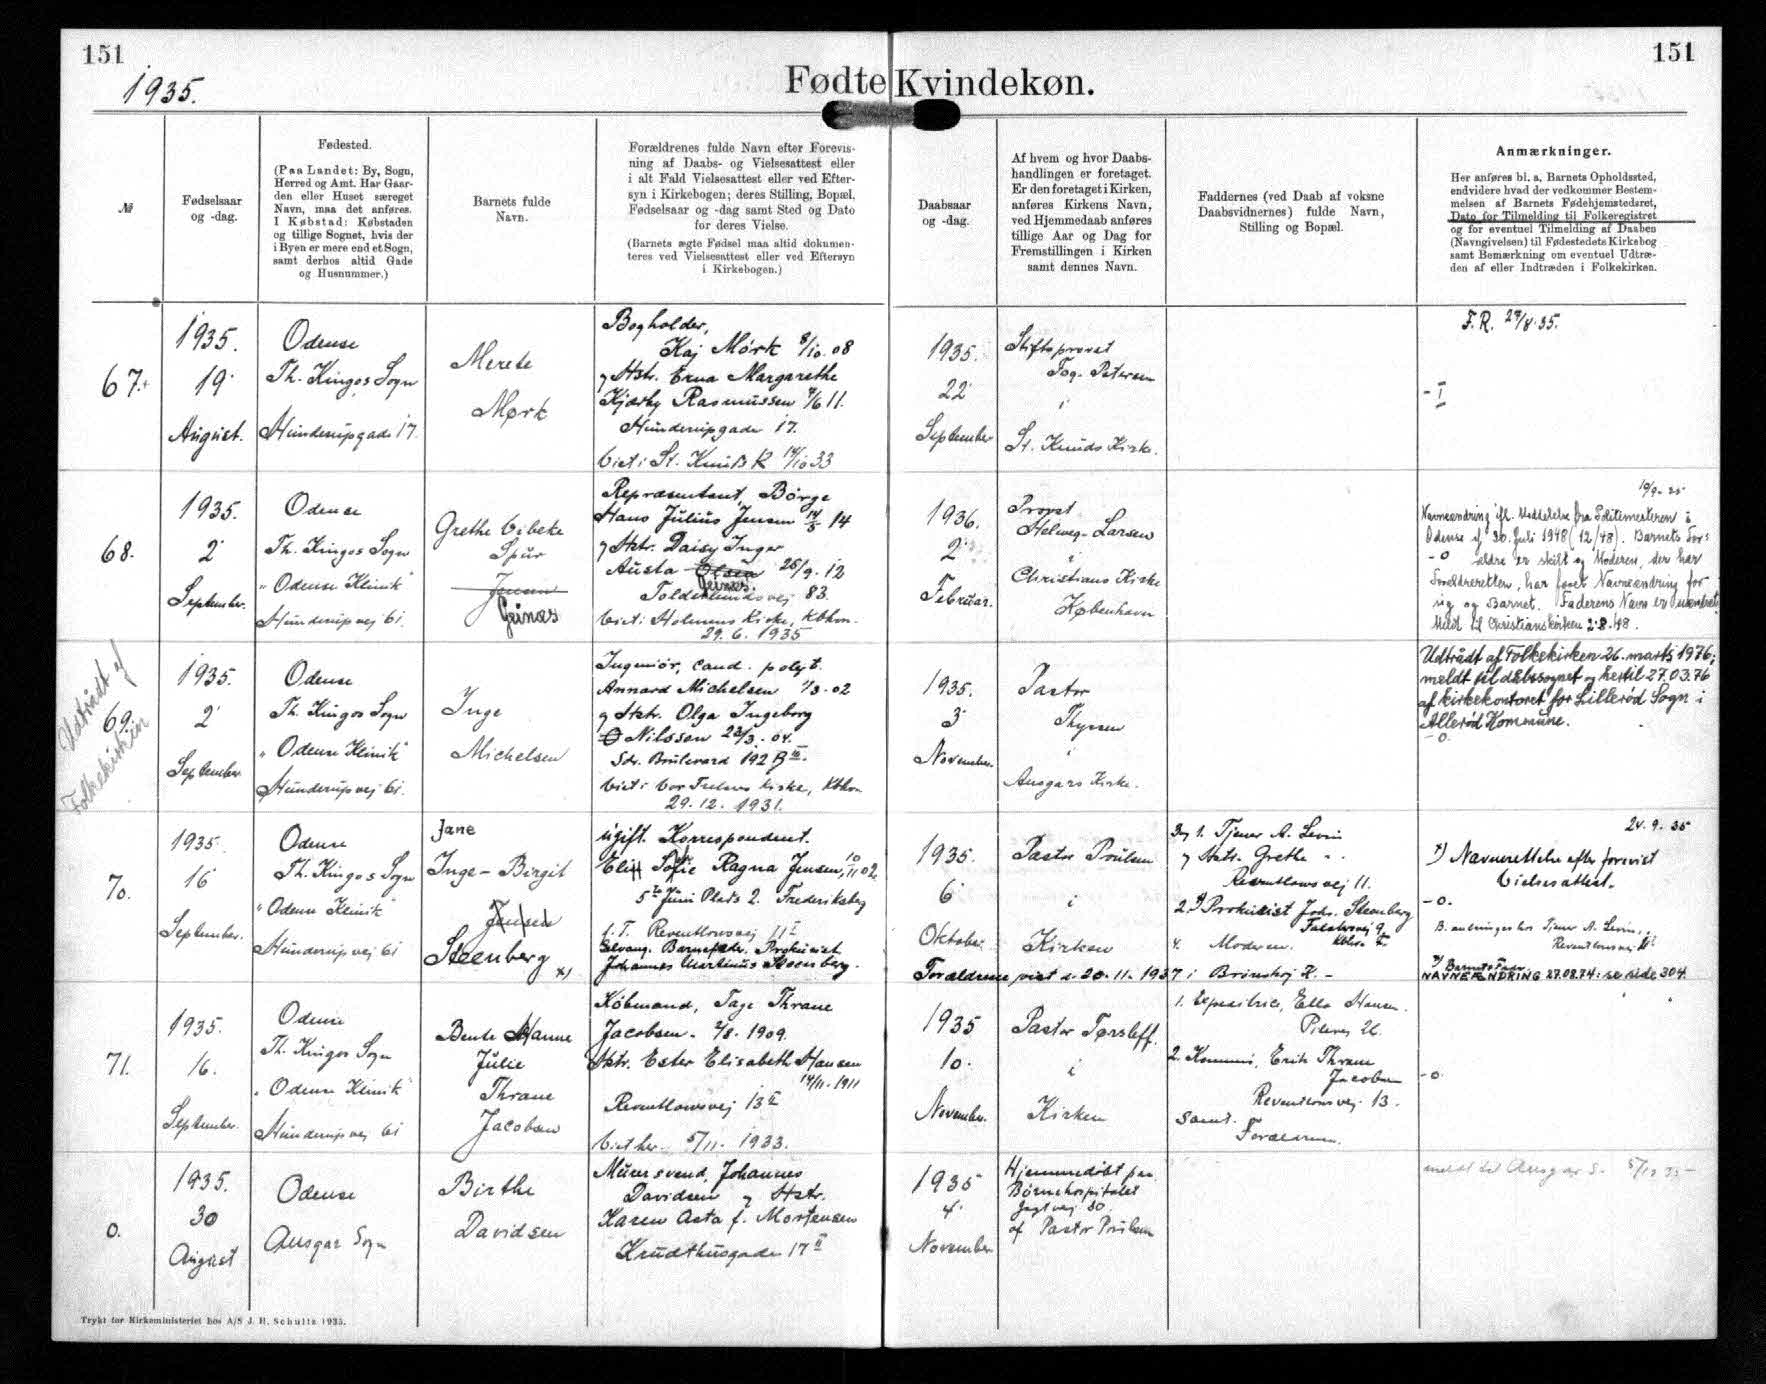 151
151
1935.
Fødte Kvindekøn.
№
Fødselsaar
og -dag.
Fødested.
(Paa Landet: By, Sogn,
Herred og Amt. Har Gaar-
den eller Huset særeget
Navn, maa det anføres.
I Købstad: Købstaden
og tillige Sognet, hvis der
i Byen er mere end et Sogn,
samt derhos altid Gade
og Husnummer.)
Barnets fulde
Navn.
Forældrenes fulde Navn efter Forevis-
ning af Daabs- og Vielsesattest eller
i alt Fald Vielsesattest eller ved Efter-
syn i Kirkebogen; deres Stilling, Bopæl,
Fødselsaar og -dag samt Sted og Dato
for deres Vielse.
(Barnets ægte Fødsel maa altid dokumen-
teres ved Vielsesattest eller ved Eftersyn
i Kirkebogen.)
Daabsaar
og -dag.
Af hvem og hvor Daabs-
handlingen er foretaget.
Er den foretaget i Kirken,
anføres Kirkens Navn,
ved Hjemmedaab anføres
tillige Aar og Dag for
Fremstillingen i Kirken
samt dennes Navn.
Faddernes (ved Daab af voksne
Daabsvidnernes) fulde Navn,
Stilling og Bopæl.
Anmærkninger.
Her anføres bl. a. Barnets Opholdssted,
endvidere hvad der vedkommer Bestem-
melsen af Barnets Fødehjemstedsret,
Dato for Tilmelding til Folkeregistret
og for eventuel Tilmelding af Daaben
(Navngivelsen) til Fødestedets Kirkebog
samt Bemærkning om eventuel Udtræ-
den af eller Indtræden i Folkekirken.
67.
1935.
19
August.
Odense
Th. Kingos Sogn
Hunderupgade 17.
Merete
Mørk
Bogholder,
Kaj Mørk 8/10.08
og Hstr. Erna Margarethe
Kjærby Rasmussen 7/6 11.
Hunderupgade 17.
Viet i St. Knuds K 14/10 33
1935.
22
September
Stiftsprovst
Fog-Petersen
i
St. Knuds Kirke.
F.R. 29/8.35.
68.
1935.
2
September.
Odense
Th. Kingos Sogn
"Odense Klinik"
Hunderupvej 61.
Grethe Vibeke
Spur
Jensen
Geinæs
Repræsentant, Børge
Hans Julius Jensen 14/5 14
og Hstr. Daisy Inger
Austa Olsen 25/9.12
Geinæs
83.
Viet i Holmens Kirke, Kbhvn.
29.6.1935
1936.
2
Februar.
Provst
Helweg-Larsen
i
Christians Kirke
København
19/9-35
Navneændring ifl. Meddelelse fra Politimesteren i
Odense af 30. Juli 1948 (12/48). Barnets For-
ældre er skilt og Moderen, der har
Forældreretten, har faaet Navneændring for
sig og Barnet. Faderens Navn er uændret.
Meldt til Christianskirken 2.8.48.
Udtrådt af
Folkekirken
69.
1935.
2
September
Odense
Th. Kingos Sogn
"Odense Klinik"
Hunderupvej 61.
Inge
Michelsen
Ingeniør, cand. polyt.
Annard Michelsen 1/3.02
og Hstr. Olga Ingeborg
Nilsson 23/3.04.
Sdr. Boulevard 192
Viet i Vor Frelsers Kirke, Kbhvn
29.12.1931.
1935.
3
November.
Pastor
Thyssen
i
Ansgars Kirke.
Udtrådt af Folkekirken 26. marts 1976;
meldt til dåbssognet og hertil 27.03.76
af kirkekontoret for Lillerød Sogn i
Allerød Kommune.
70.
1935.
16
September.
Odense
Th. Kingos Sogn
"Odense Klinik"
Hunderupvej 61
Jane
Inge-Birgit
Jensen
Steenberg x)
ugift. Korrespondent.
Elin Sofie Ragna Jensen, 10/11 02.
5te Juni Plads 2. Frederiksberg
f.T. Reventlowsvej 11
Barnefader. Prokurist
Johannes Martinus Steenberg.
Forældrene viet d. 20.11.1937 i Brønshøj K.
1935.
6
Oktober
Pastor Poulsen
i
Kirken
1. Tjener A. Levin
og Hstr. Grethe - -
Reventlowsvej 11.
2. Prokurist Johs. Steenberg
Moderen.
24.9.35
x) Navnerettelse efter forevist
Vielsesattest.
B. anbringes hos Tjener A. Levin,
Reventlowsvej 11
NAVNEÆNDRING 27.08.74: se side 304
71.
1935.
16.
September.
Odense
Th. Kingos Sogn
"Odense Klinik"
Hunderupvej 61
Bente Hanne
Julie
Thrane
Jacobsen
Købmand, Tage Thrane
Jacobsen. 2/8.1909.
Hstr. Ester Elisabeth Hansen
14/11-1911
Reventlowsvej 13
Viet her 5/11. 1933.
1935
10.
November.
Pastor Tørsleff.
i
Kirken
1. Ella Hansen.
2. Kommis, Erik Thrane
Jacobsen
Reventlowsvej 13.
samt.
Forældrene.
0.
1935.
30
August
Odense
Ansgar Sogn
Birthe
Davidsen
Murersvend, Johannes
Davidsen og Hstr.
Karen Asta f. Mortensen
Krudthusgade 17
1935
4.
November
Hjemmedøbt paa
Børnehospitalet
Jagtvej 30.
af Pastor Poulsen
meldt til Ansgar S. 5/12 35
Trykt for Kirkeministeriet hos A/S J. H. Schultz 1935.